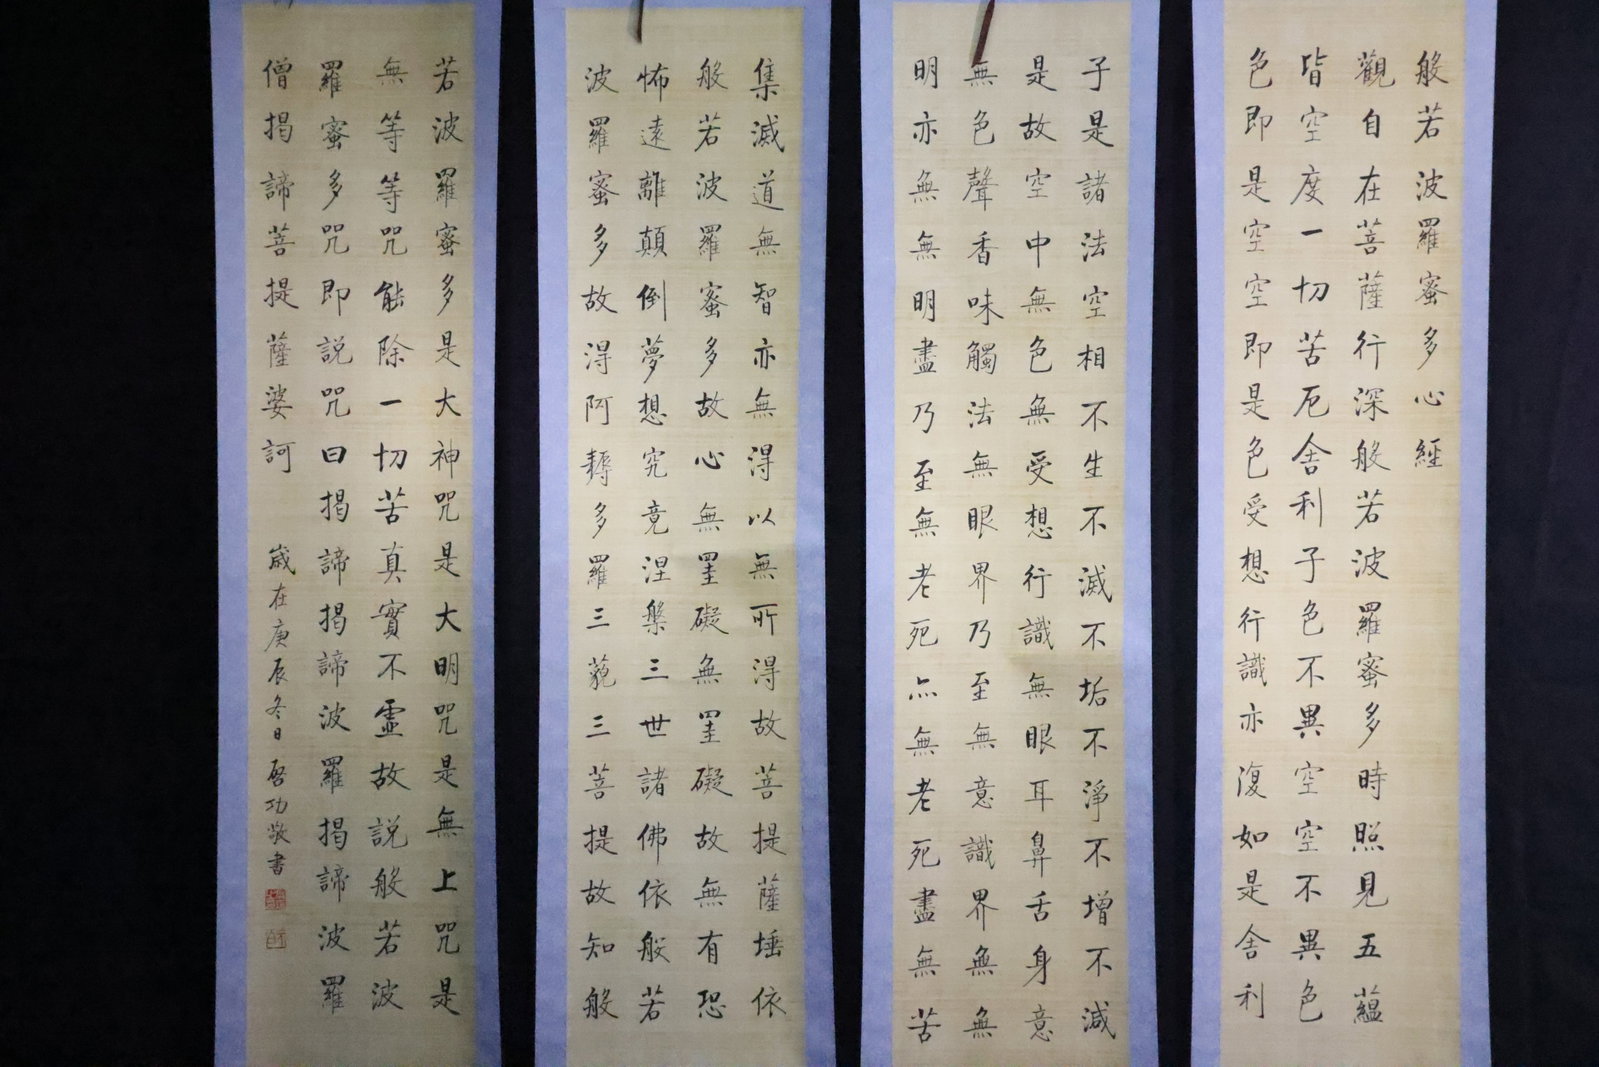 般若波羅蜜多心經
觀自在菩薩行深般若波羅蜜多時照見五蘊
皆空度一切苦厄舍利子色不異空空不異色
色即是空空即是色受想行識亦復如是舍利
子是諸法空相不生不滅不垢不淨不增不減
是故空中無色無受想行識無眼耳鼻舌身意
無色聲香味觸法無眼界乃至無意識界無無
明亦無無明盡乃至無老死亦無老死盡無苦
集滅道無智亦無得以無所得故菩提薩埵依
般若波羅蜜多故心無罣礙無罣礙故無有恐
怖遠離顛倒夢想究竟涅槃三世諸佛依般若
波羅蜜多故得阿耨多羅三藐三菩提故知般
若波羅蜜多是大神咒是大明咒是無上咒是
無等等咒能除一切苦真實不虛故說般若波
羅蜜多咒即說咒曰揭諦揭諦波羅揭諦波羅
僧揭諦菩提薩婆訶
歲在庚辰冬日啟功敬書